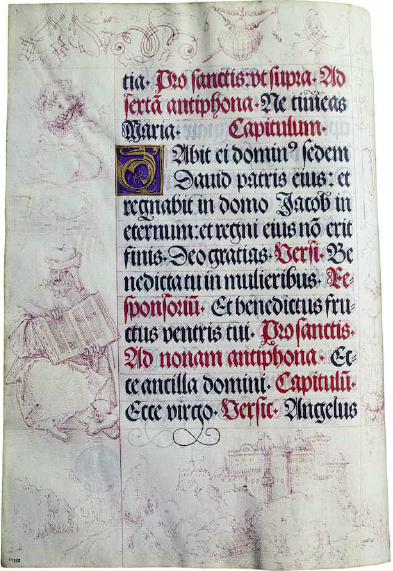 tia. Pro sanctis: vt supra. Ad
sertā antiphona. Ne timeas
Maria. Capitulum.
DAbit ei domin⁹ sedem
Dauid patris eius: et
regnabit in domo Jacob in
eternum: et regni eius nō erit
finis. Deo gratias. Versi. Be
nedicta tu in mulieribus. Re-
sponsoriū. Et benedictus fru-
ctus ventris tui. Pro sanctis.
Ad nonam antiphona. Ec-
ce ancilla domini. Capitulū.
Ecce virgo. Versic. Angelus